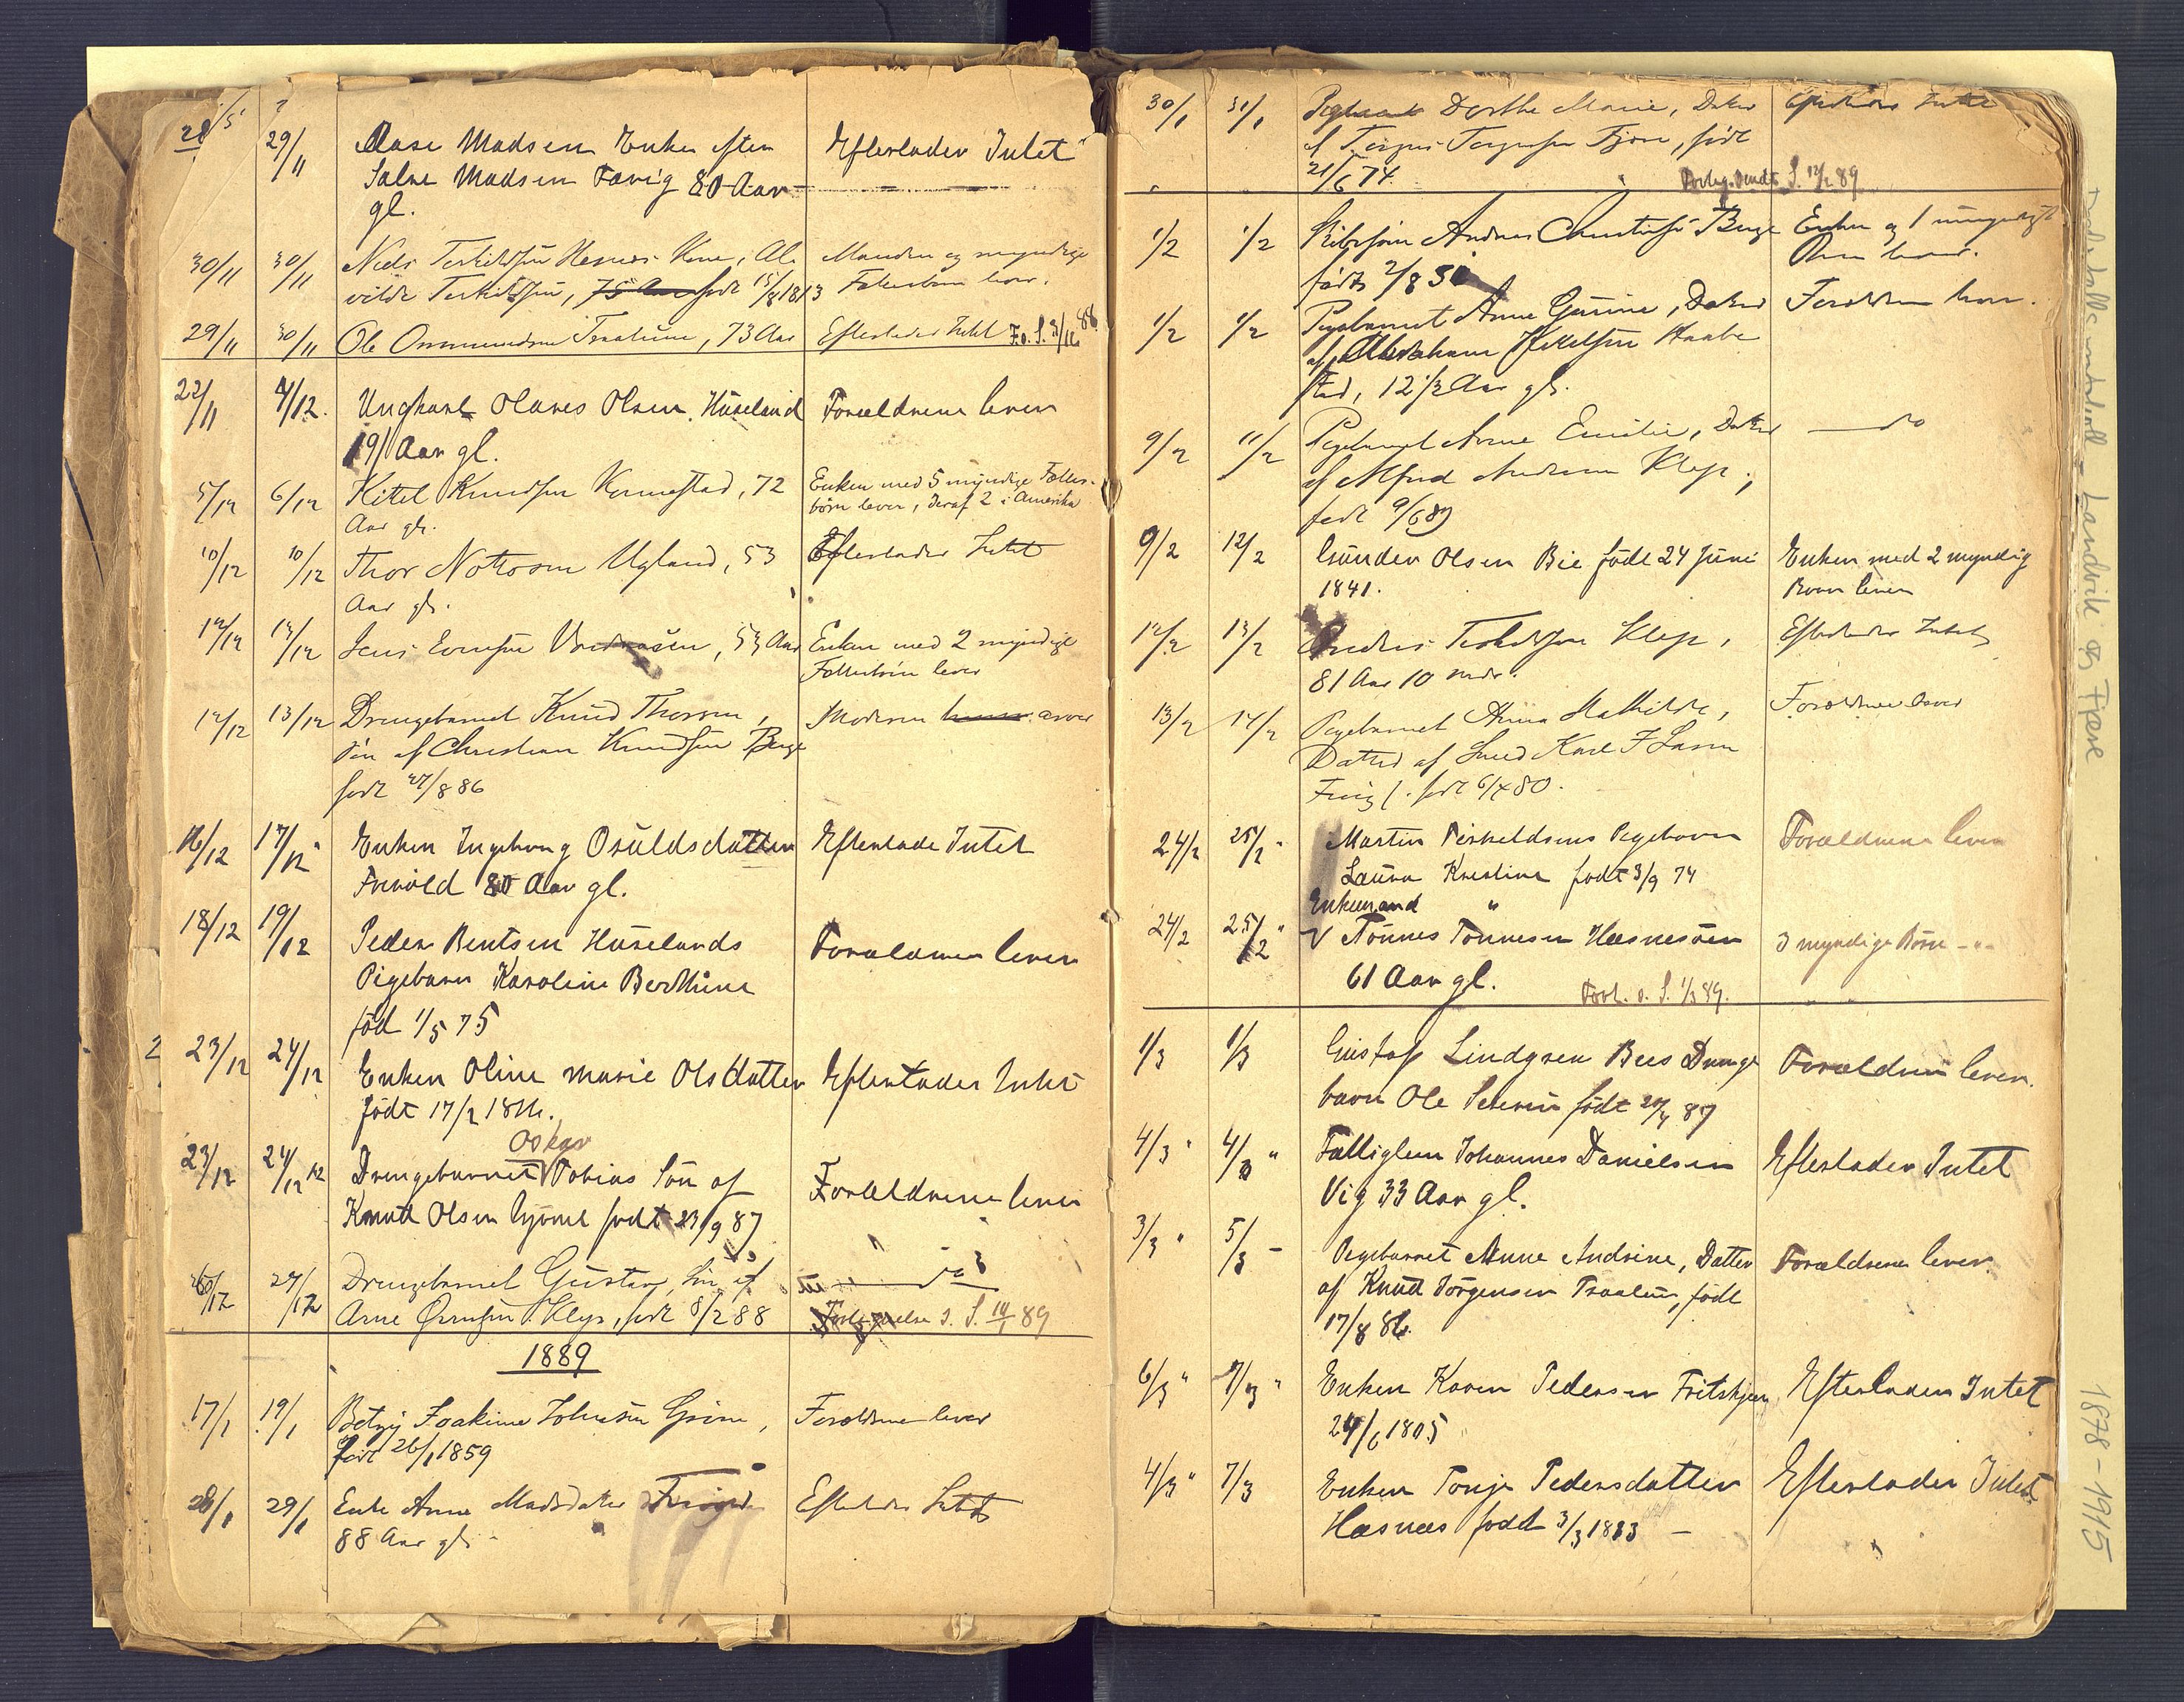 28/5 29/11 Aase Madsen Enke efter Efterlader Intet
Salve Madsen Tavig 80 Aar
gl.
30/11 30/11 Niels Terkildsen Hesnes Kone, Al- Manden og myndige
vilde Terkildsen, 75 Aar født 15/8 1813 Fællesbørn lever.
29/11 30/11 Ole Ommundsen Traalum, 73 Aar Efterlader Intet F.o.S. 3/12 88
22/11 4/12. Ungkarl Olaves Olsen Húseland Forældrene lever
19 Aar gl.
5/12 6/12 Kittel Knudsen Kennestad, 72 Enken med 5 myndige Fælles-
Aar gl. børn lever, deraf 2 i Amerika
10/12 10/12 Thor Nottosen Ugland, 53 Efterlader Intet
Aar gl.
12/12 13/12 Jens Evensen, 53 Aar Enken med 2 myndige
Fællesbørn lever
12/12 13/12 Drengebarnet Knud Thorsen, Moderen lever
Søn af Christian Knudsen Berge
født 27/8 86
16/12 17/12 Enken Ingeborg Osúldsdatter Efterlade Intet
Frivold 80 Aar gl.
18/12 19/12 Peder Bentsen Húselands Forældrene lever
Pigebarn Karoline Berthine
fød 1/5 75
2 23/12 24/12 Enken Oline Marie Olsdatter Efterlader Intet
født 17/2
Oskar
23/12 24/12 Drengebarnet Tobias Søn af Forældrene lever
Knudt Olsen født 23/9 87
27/12 Drengebarnet Gústav, Søn af do
Arne Klep, født 8/2 88 S. 89
1889
17/1 19/1 Joakime Johnsen Grim, Forældrene lever
født 26/1 1859
28/1 29/1 Enke Anne Madsdatter Efterlader Intet
88 Aar gl.
30/1 31/1 Pigebarnet Dorthe Marie, Datter Efterlader Intet
af Terjus Terjusen Fjære, født
21/6 74. S. 12/2 89
1/2 1/2 Andreas Berge Enken og 1 umyndigt
født 2/8 Barn lever.
1/2 1/2 Pigebarnet Anne Gurine, Datter Forældrene lever.
af Abraham Kittelsen Haabe-
stad, 12 1/2 Aar gl.
9/2 11/2 Pigebarnet Anne Emilie, Datter do
af Alfred Andersen Klep,
født
9/2 12/2 Gúnder Olsen Bie født 24 Júni Enken med 2 myndig
1841. Børn lever
12/2 13/2 Anders Terkildsen Klep, Efterlader Intet
81 Aar 10 mdr.
13/2 14/2 Pigebarnet Anna Mathilde, Forældrene lever
Datter af Smed Karl F Larsen
født 80.
24/2 25/2 Martin Terkeldsens Pigebarn Forældrene lever
Laúra Kristine født 3/9 74
Enkemand "
24/2 25/2 " V Tønnes Tønnesen Hæsnesøen 3 myndige Børn - " -
61 Aar gl. Forl. o. S. 1/3 89.
1/3 1/3 Gústaf Lindgren Bies Drenge- Forældrene lever.
barn Ole Severin født 87
4/3 " 4/3 " Fattiglem Johannes Danielsen Efterlader Intet
Vig 33 Aar gl.
3/3 " 5/3 - Pigebarnet Anne Andrine, Datter Forældrene lever.
af Knudt Jørgensen Traalúm, født
17/8 86.
6/3 " 7/3 " Enken Karen Pedersen Fritskjen Efterlader Intet
24/6 1805
4/3 " 7/3 Enken Tonje Pedersdatter Efterlader Intet
Hæsnæs født 3/3 1813 -
Landvik og Fjære
1878-1915